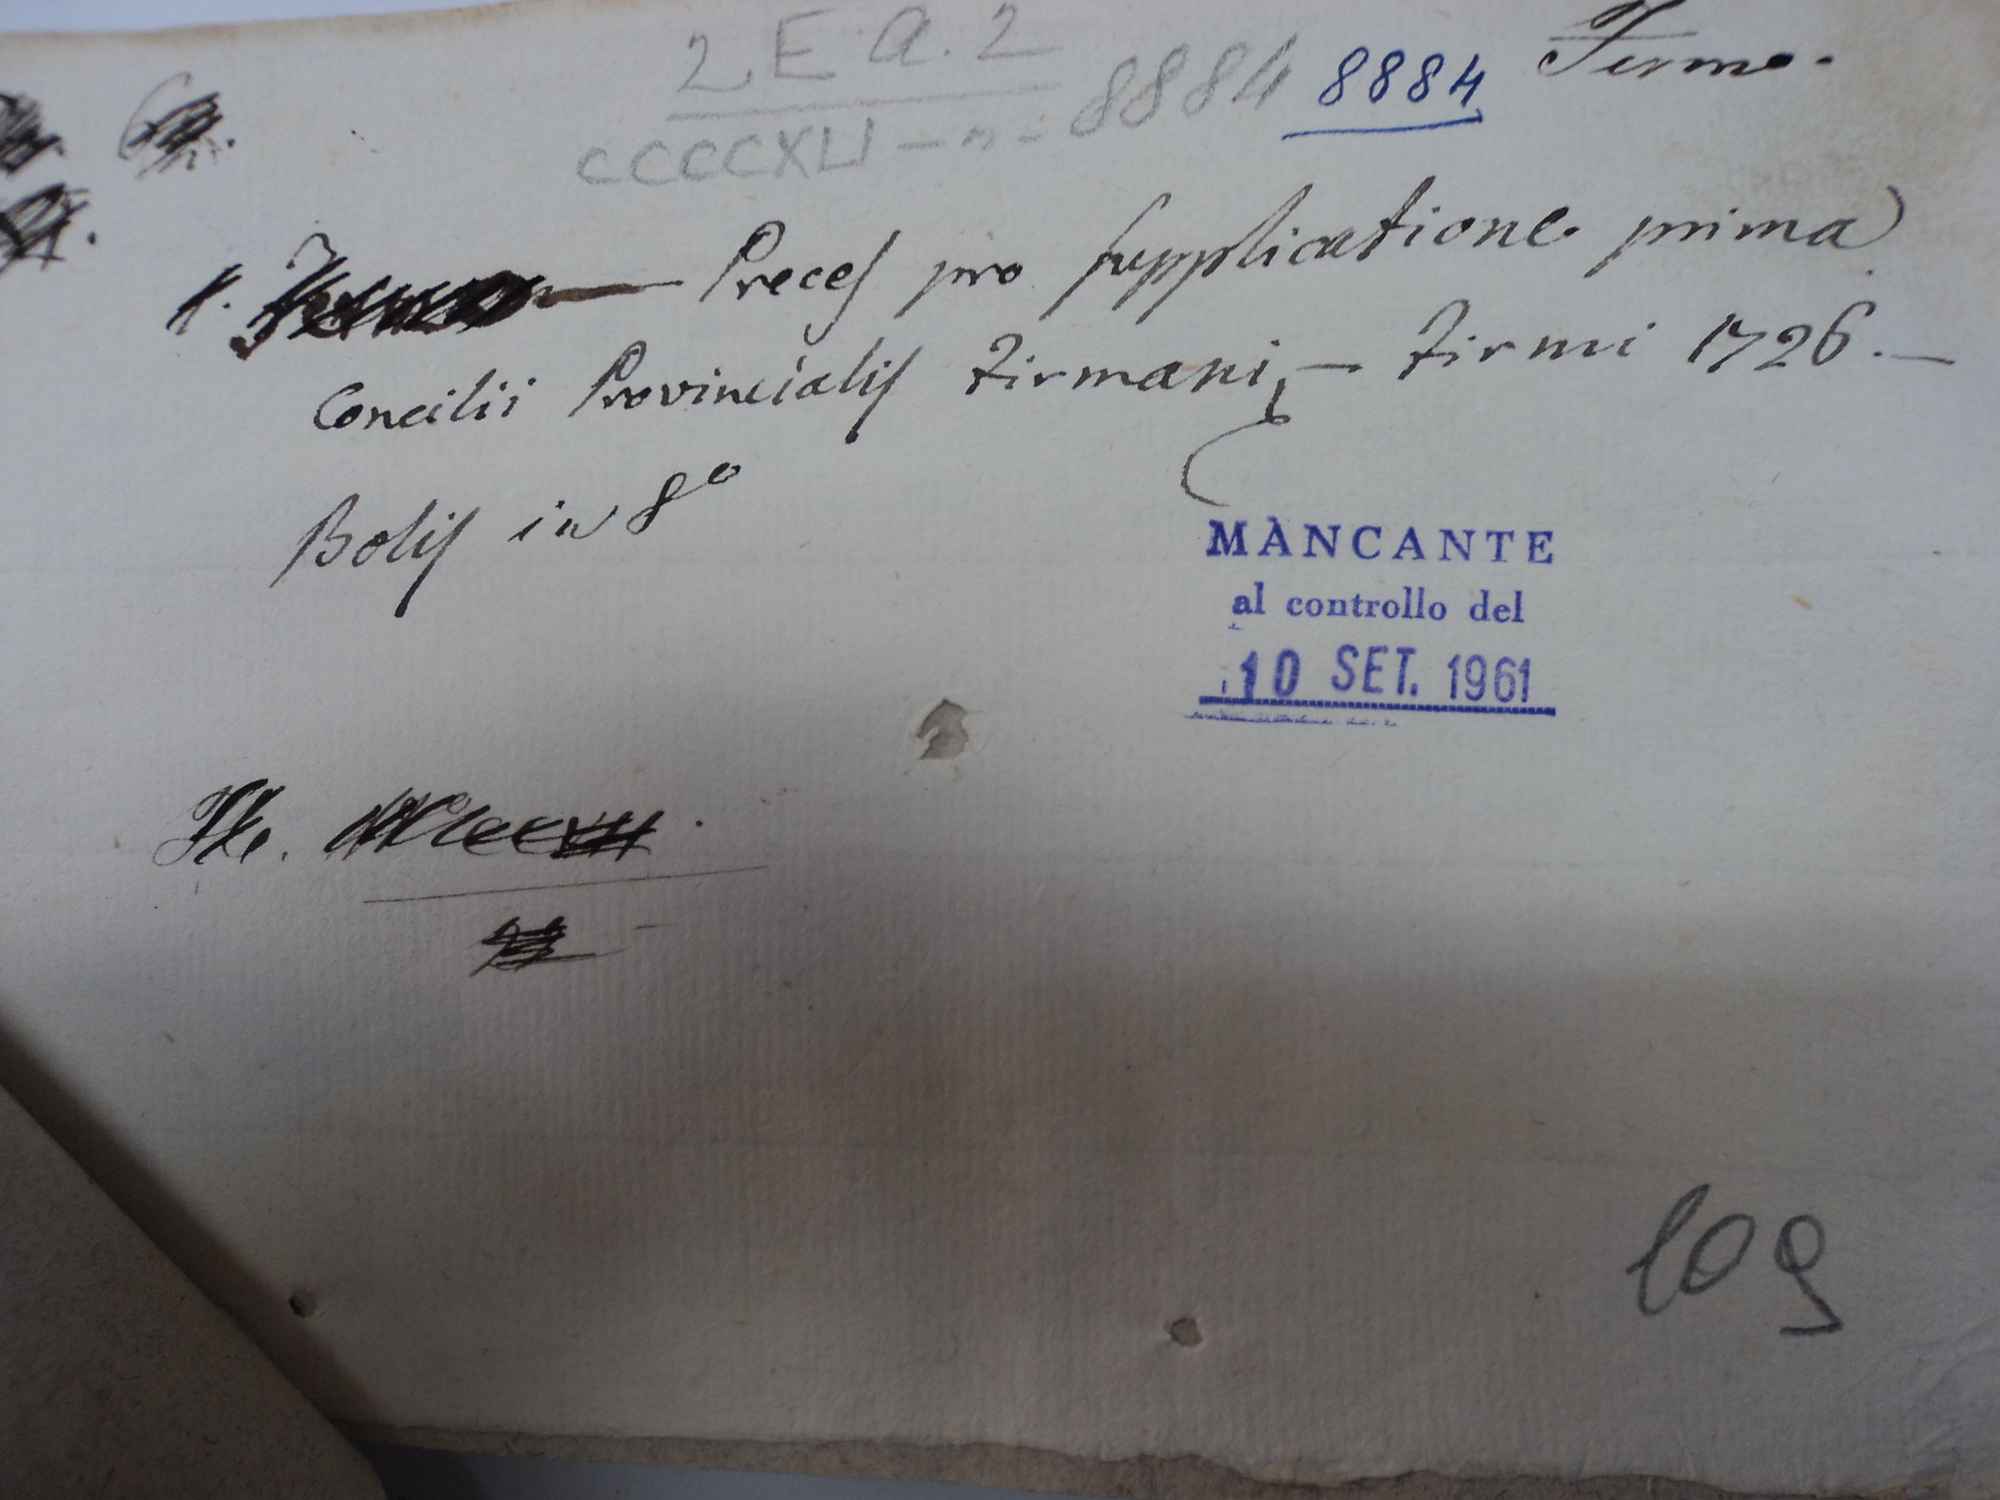 2 E. a. 2
CCCCXLI - n - 8884 8884 Fermo.
Preces pro supplicatione prima
Concilii Provincialis Firmani, - Firmi 1726. -
Bolis in 8º
MANCANTE
al controllo del
10 SET. 1961
109